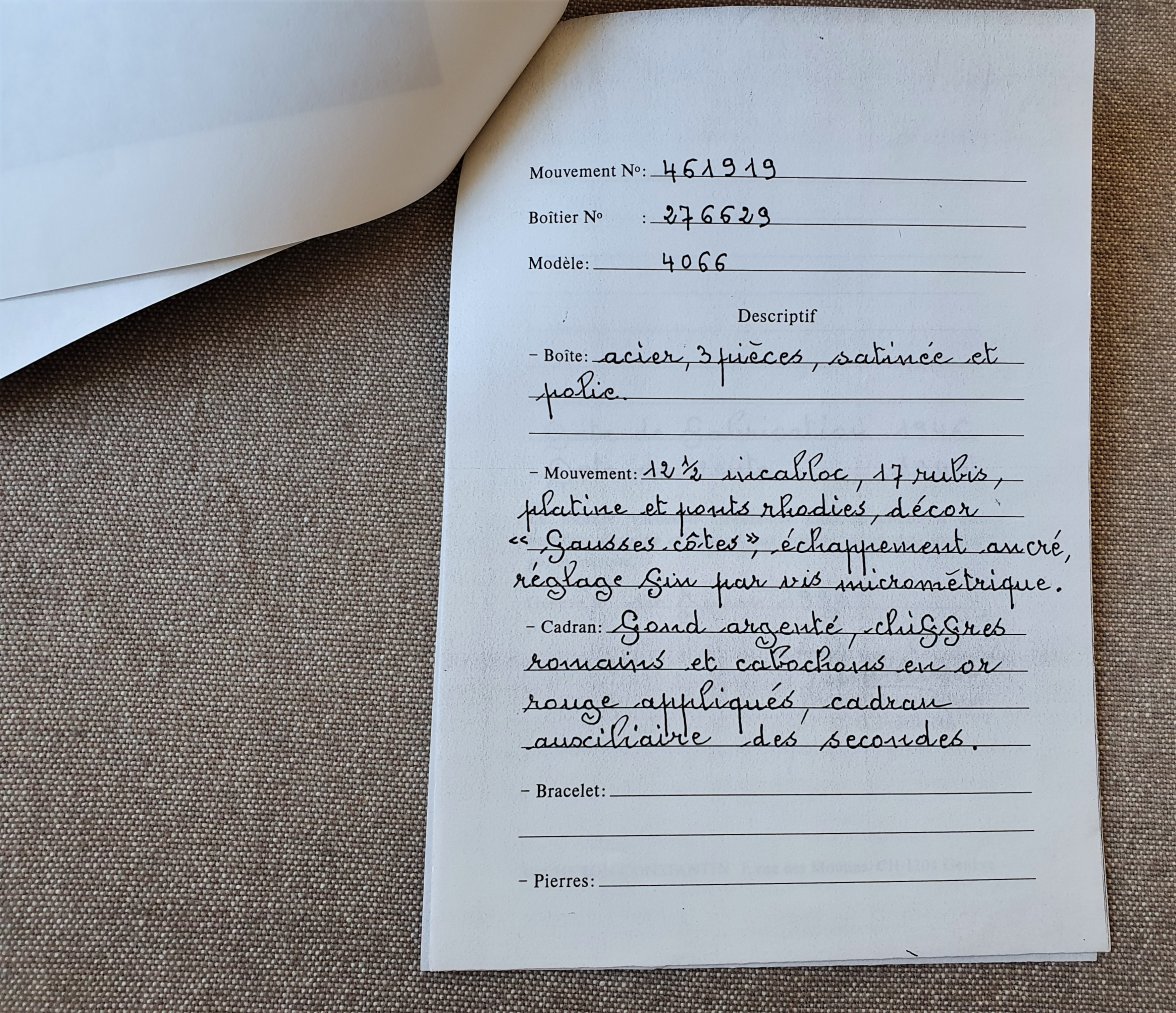 Mouvement Nº: 461919
Boîtier Nº : 276629
Modèle: 4066
Descriptif
– Boîte: acier, 3 pièces, satinée et
polie.
– Mouvement: 12 ½ incabloc, 17 rubis,
platine et ponts rhodiés, décor
« fausses côtes », échappement ancré,
réglage fin par vis micromètrique.
– Cadran: fond argenté, chiffres
romains et cabochons en or
rouge appliqués, cadran
auxiliaire des secondes.
– Bracelet:
– Pierres: